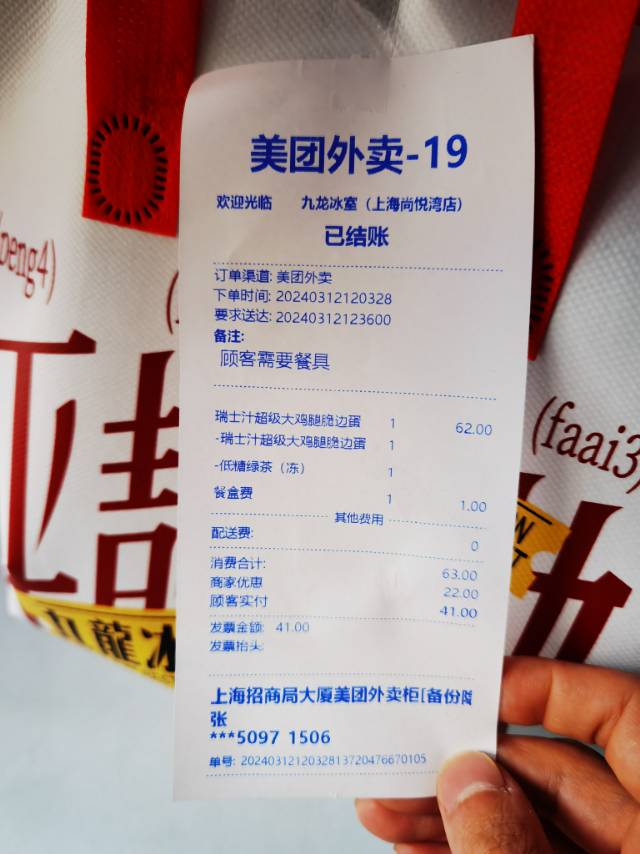 美团外卖-19
欢迎光临 九龙冰室（上海尚悦湾店）
已结账
订单渠道: 美团外卖
下单时间: 20240312120328
要求送达: 20240312123600
备注:
顾客需要餐具
瑞士汁超级大鸡腿脆边蛋 1 62.00
-瑞士汁超级大鸡腿脆边蛋 1
-低糖绿茶（冻） 1
餐盒费 1 1.00
其他费用
配送费: 0
消费合计: 63.00
商家优惠 22.00
顾客实付 41.00
发票金额: 41.00
发票抬头:
上海招商局大厦美团外卖柜[备份
张
***5097 1506
单号: 2024031212032813720476670105
peng4)
(faai3)
九龍冰